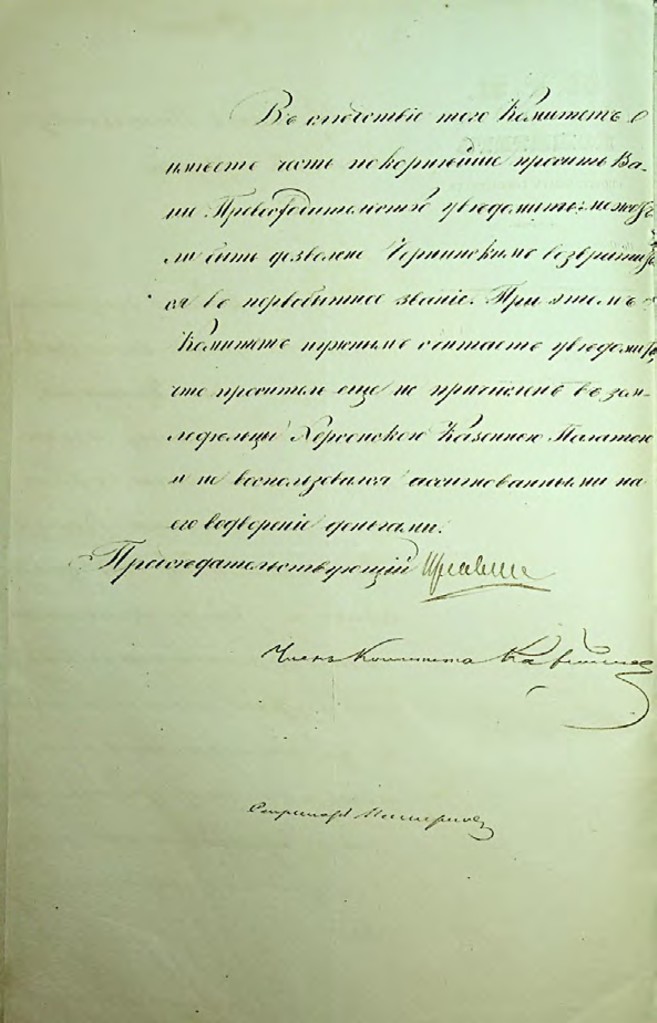 Въ слѣдствіе того Комитетъ
имѣетъ честь покорнѣйше просить Ва-
ше Превосходительство увѣдомить: може
ли быть дозволено Чернинскимъ возвратить
ся въ первобытное званіе. При этомъ
Комитетъ нужнымъ считаетъ увѣдомить,
что проситель еще не причисленъ въ зем-
ледѣльцы Херсонскою Казенною Палатою
и не воспользовался ассигнованными на
его водвореніе деньгами.
Предсѣдательствующій
Членъ Комитета
Секретарь